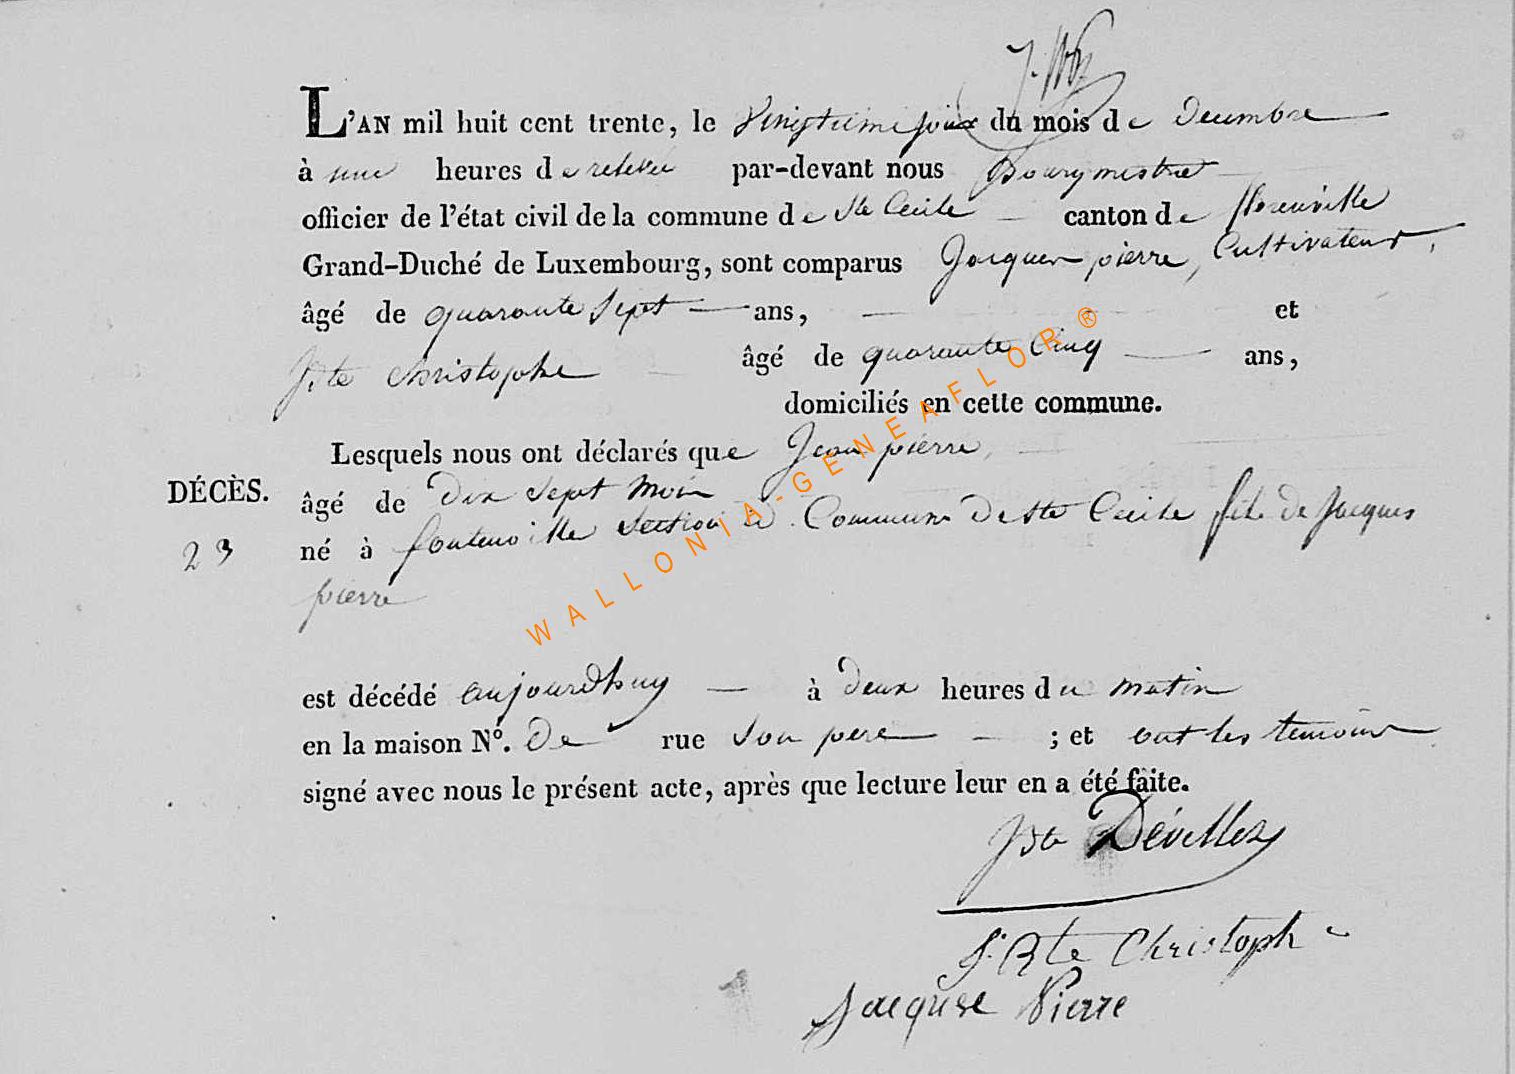 L'AN mil huit cent trente, le Vingtieme jour du mois de Decembre
à une heures de relevée par-devant nous Bourgmestre
officier de l'état civil de la commune de Ste Cecile canton de florenville
Grand-Duché de Luxembourg, sont comparus Jacques pierre, Cultivateur,
âgé de quarante sept ans, et
J. Bte christophe âgé de quarante Cinq ans,
domiciliés en cette commune.
Lesquels nous ont déclarés que Jean pierre,
DÉCÈS. âgé de dix sept mois
23 né à fontenoille section d. Commune de Ste Cecile fils de Jacques
pierre
est décédé aujourdhuy à deux heures du matin
en la maison N°. De rue Son pere ; et ont les temoins
signé avec nous le présent acte, après que lecture leur en a été faite.
JBte Dévillez
J. Bte Christophe
Jacques Pierre
WALLONIA-GENEAFLOR®